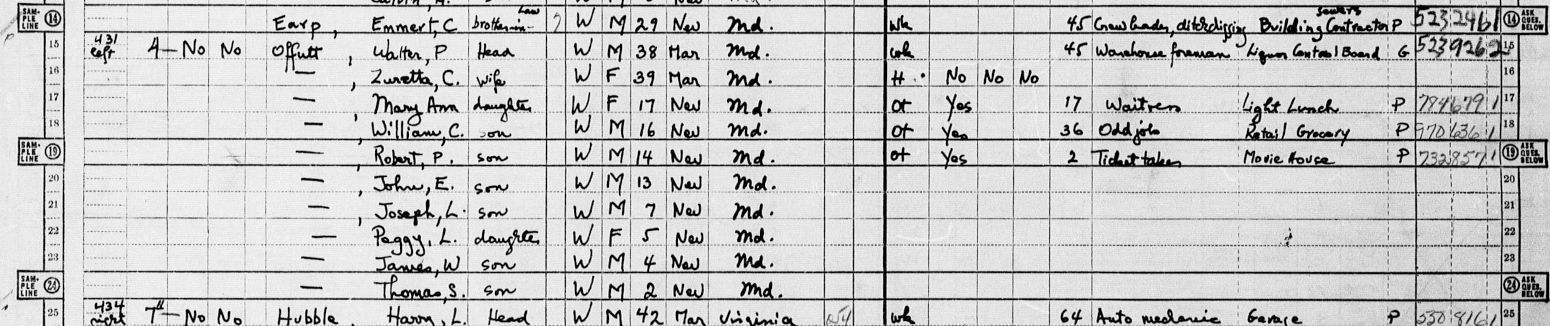 SAM- PLE LINE 14 Earp, Emmert, C brother-in-law 7 W M 29 Nev Md. Wk 45 Crew leader, ditchdigging sewers Building Contractor P 523 246 1 14 ASK QUES. BELOW
15 431 left 4 — No No Offutt, Walter, P Head W M 38 Mar Md. wk 45 Warehouse foreman Liquor Control Board G 523 926 2 15
16 —, Zuretta, C. wife W F 39 Mar Md. H No No No 16
17 —, Mary Ann daughter W F 17 Nev Md. Ot Yes 17 Waitress Light Lunch P 784 679 1 17
18 —, William, C. son W M 16 Nev Md. Ot Yes 36 Odd jobs Retail Grocery P 970 636 1 18
SAM- PLE LINE 19 —, Robert, P. son W M 14 Nev Md. Ot Yes 2 Ticket taker Movie House P 732 857 1 19 ASK QUES. BELOW
20 —, John, E. son W M 13 Nev Md. 20
21 —, Joseph, L. son W M 7 Nev Md. 21
22 —, Peggy, L. daughter W F 5 Nev Md. 22
23 —, James, W son W M 4 Nev Md. 23
SAM- PLE LINE 24 —, Thomas, S. son W M 2 Nev Md. 24 ASK QUES. BELOW
25 434 right 7 — No No Hubble, Harry, L. Head W M 42 Mar Virginia wk 64 Auto mechanic Garage P 530 816 1 25